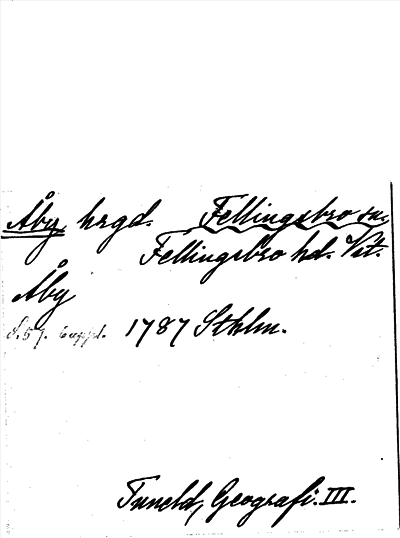 Åby, hrgd. Fellingsbro sn,
Fellingsbro hd. Vst.
Åby
s. 57. 6 uppl. 1787 Sthlm.
Tuneld, Geografi. III.